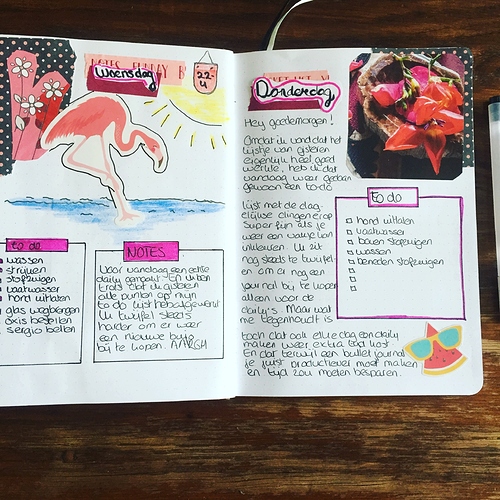 Woensdag
22-4
to do
wassen
strijken
stofzuigen
vaatwasser
hond uitlaten
glas wegbrengen
bellen
sergio bellen
NOTES
Voor vandaag een echte
daily gemaakt. En
trots dat ik gisteren
alle punten op mijn
to do lijst heb
Ik twijfel steeds
harder om er weer
een nieuwe bujo
bij te kopen. ARRGH
Donderdag
Hey goedemorgen!
Omdat ik vond dat het
lijstje van gisteren
eigenlijk heel goed
werkte, heb ik dat
vandaag weer gedaan
gewoon een to do
lijst met de dag-
elijkse dingen erop
Super fijn als je
weer een vakje kan
inkleuren. Ik zit
nog steeds te twijfel-
en om er nog een
journal bij te kopen
alleen voor de
daily's. Maar wat
me tegenhoudt is
toch dat ook elke dag een daily
maken weer extra tijd kost
En dat terwijl een bullet journal
je juist productiever moet maken
en tijd zou moeten besparen.
to do
hond uitlaten
vaatwasser
boven stofzuigen
wassen
beneden stofzuigen